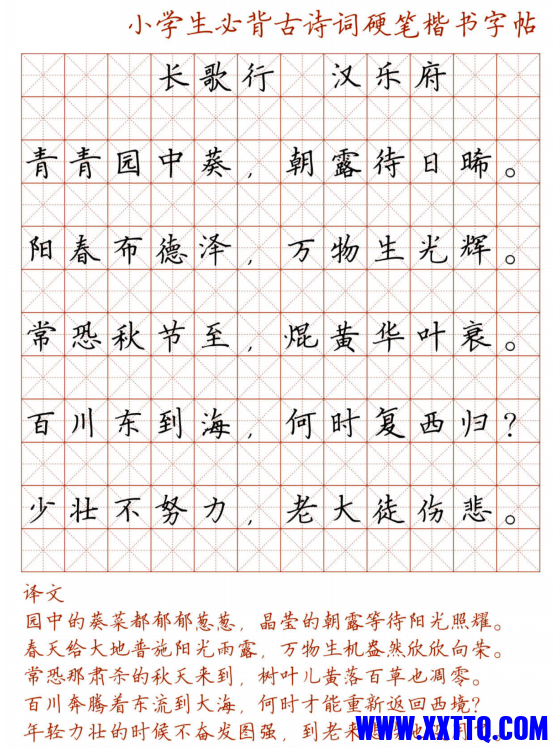 小学生必背古诗词硬笔楷书字帖
长歌行 汉乐府
青青园中葵，朝露待日晞。
阳春布德泽，万物生光辉。
常恐秋节至，焜黄华叶衰。
百川东到海，何时复西归？
少壮不努力，老大徒伤悲。
译文
园中的葵菜都郁郁葱葱，晶莹的朝露等待阳光照耀。
春天给大地普施阳光雨露，万物生机盎然欣欣向荣。
常恐那肃杀的秋天来到，树叶儿黄落百草也凋零。
百川奔腾着东流到大海，何时才能重新返回西境？
年轻力壮的时候不奋发图强，到老来
WWW.XXTTQ.COM